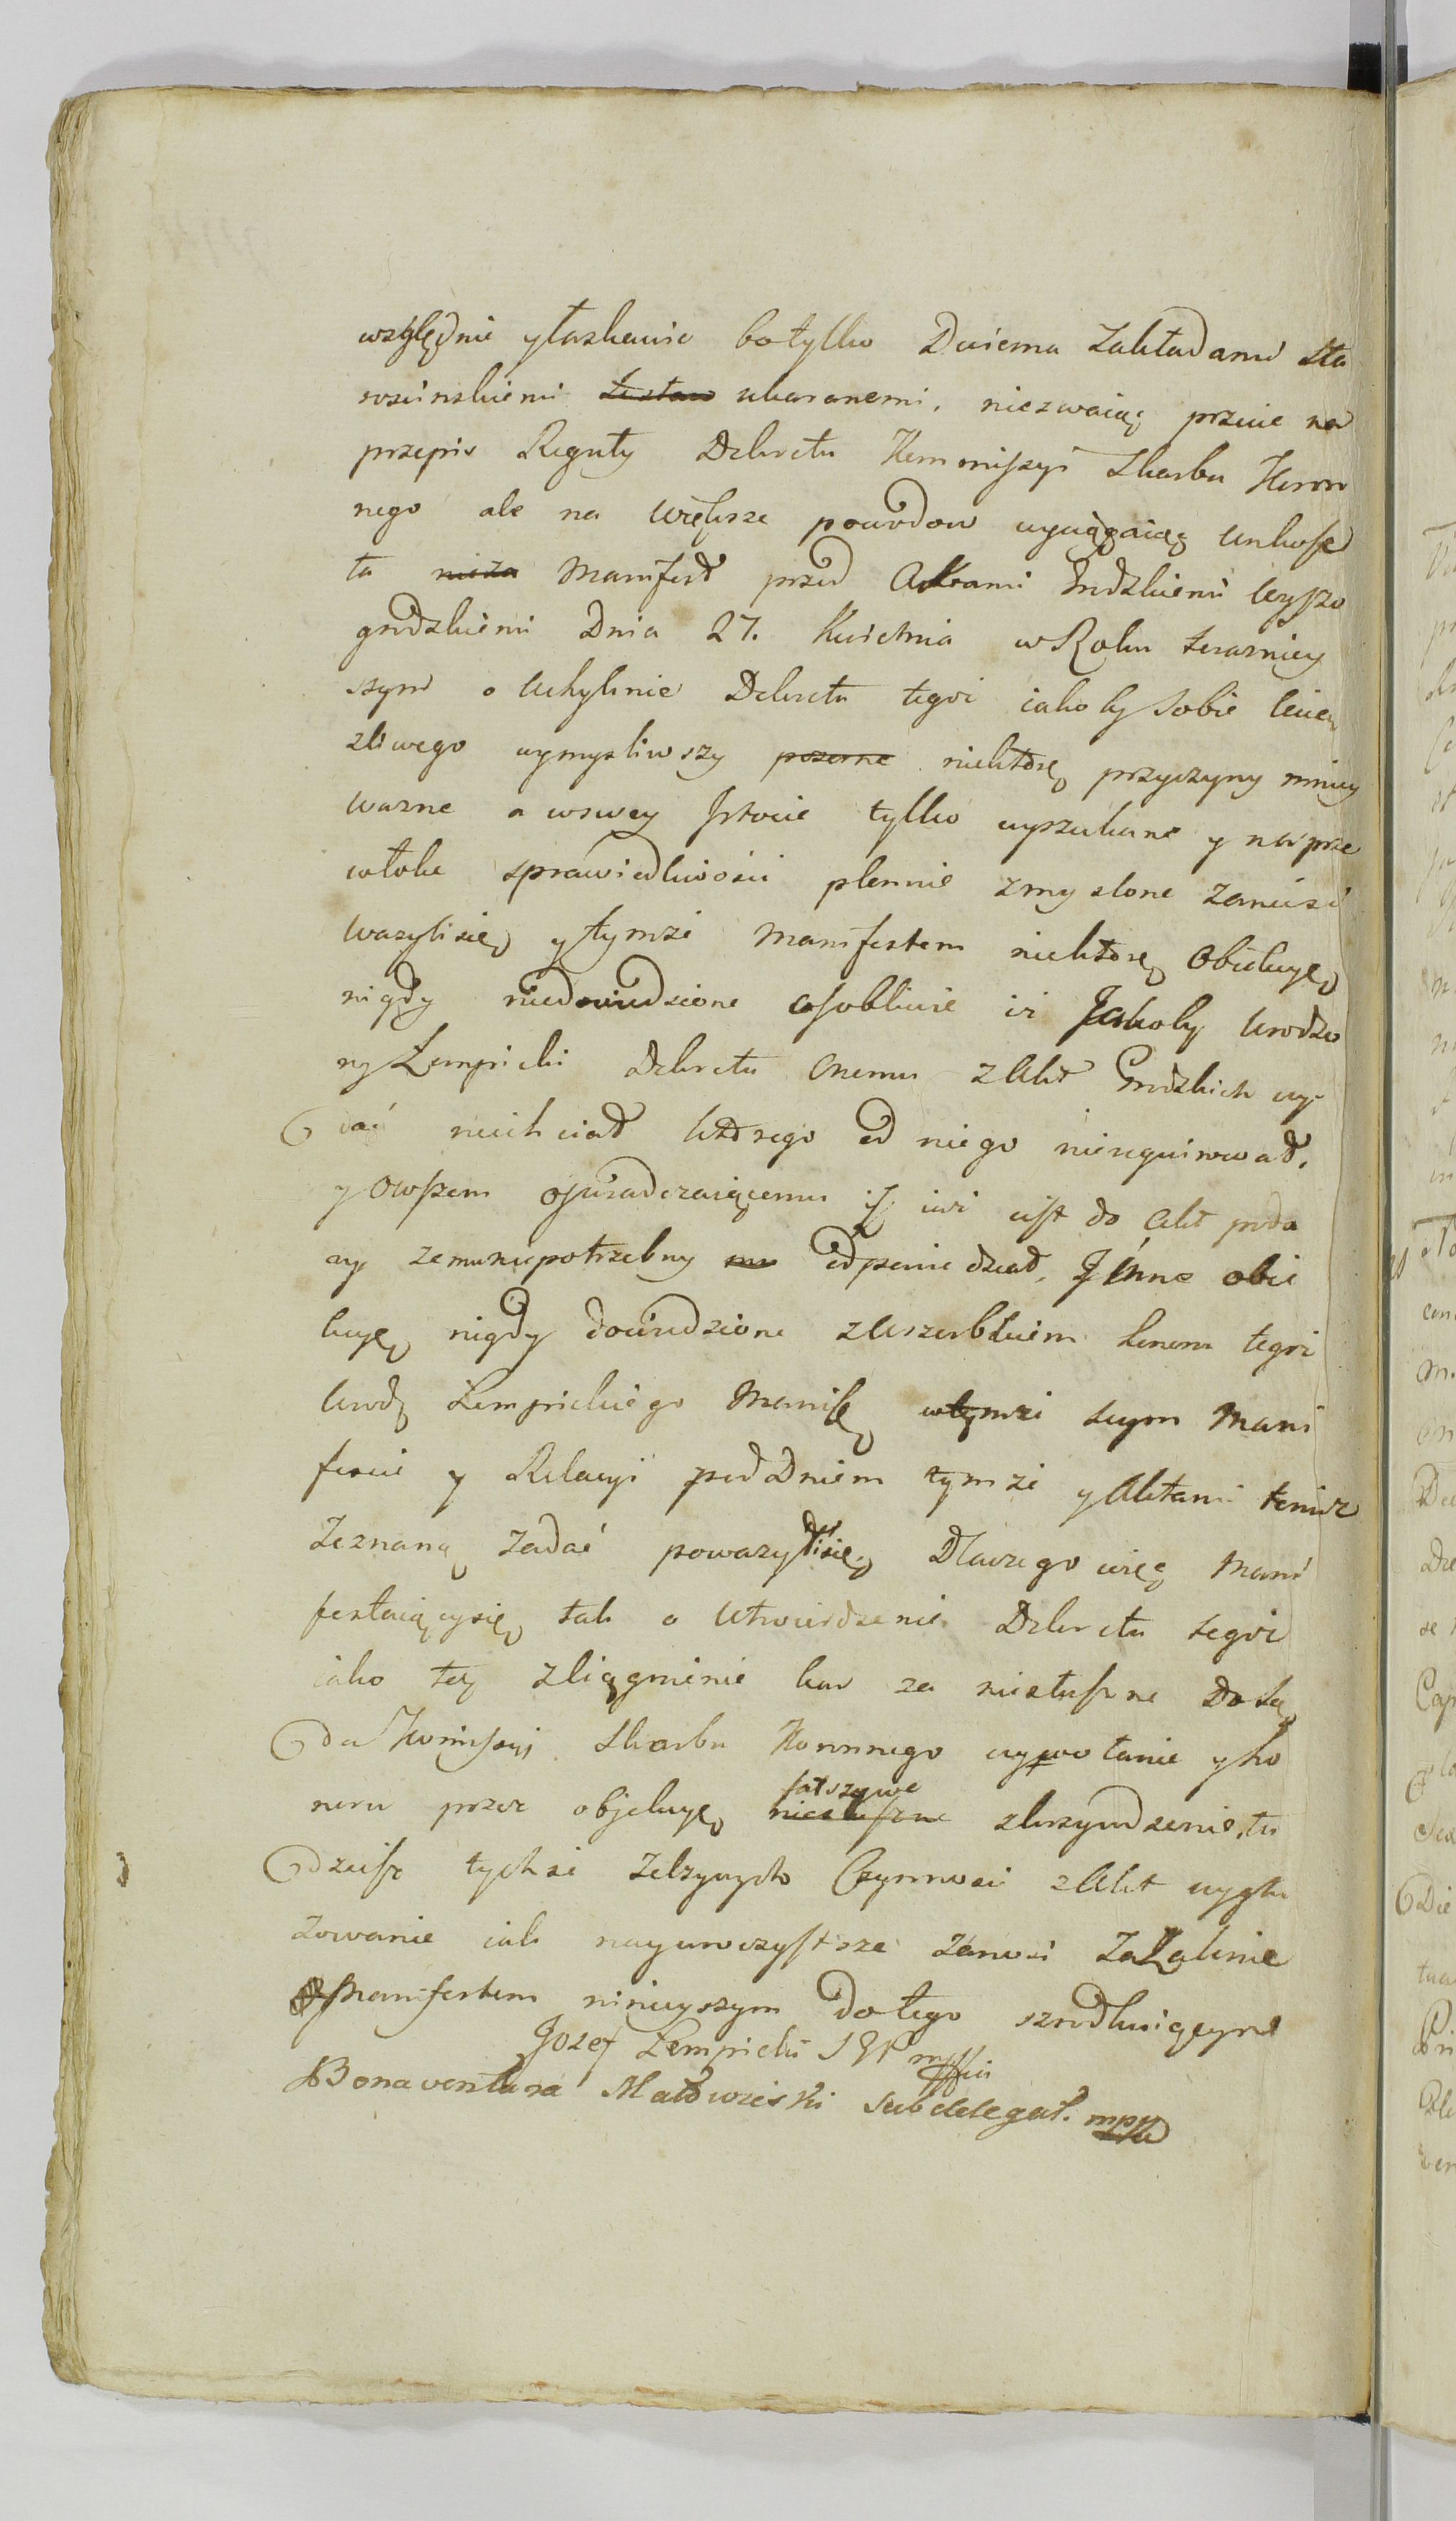 względnie y łaskawie bo tylko Dwiema Zakładami Sta
rościnskiemi ukaranemi, niezwaiąc przecie na
przepis Reguły Dekretu Kommiszyi Skarbu Koron
nego ale na większe powodow wyciągaiąc unkoszta
ta Manifest przed Aktami Grodzkiemi Wyszo
grodzkiemi Dnia 27. Kwietnia w Roku terazniey
szym o Uchylenie Dekretu tegoż iakoby Sobie
zliwego wymysliwszy niektorę przyczyny mniey
wazne a w swey Istocie tylko wyszukane y na prze
włoke sprawiedliwości plennie zmyslone zaniesć
wazyli się y tymże Manifestem niektorę Obiekcyę
nigdy niedowiedzione osobliwie iż Jakoby Urodzo
ny Lempicki Dekretu Onemu z Akt Grodzkich wy
dać niechciał ktorego od niego nierequirował,
y Owszem oswiadczaiącemu iż iuż iest do Akt poda
ny ze mu niepotrzebny odpowiedział, Y Inne obie
kcyę nigdy dowiedzione z Uszerbkiem honoru tegoż
Urodz Lempickiego w tymże swym Mani
fescie y Relacyi pod Dniem tymże y Aktami temiż
Zeznaną Zadać powazyli się, Dla czego więc Mani
festuiący się tak o Utwierdzenie Dekretu tegoż
iako też zciągnienie kar za niesłuszne do Są
du Komiszyi Skarbu Koronnego wywołanie y ho
noru przez objekcyę fałszywe niesłuszne skrzywdzenie, tu
dziesz tychże Zelzywych Czynności z Akt wygłu
zowanie iak nayuroczystsze zanosi Zażalenie
Manifestem ninieyszym do tego szrodkuiącym
Jozef Lempicki S G W mpp
Bonawentura Małowieski Subdelegat. mpp